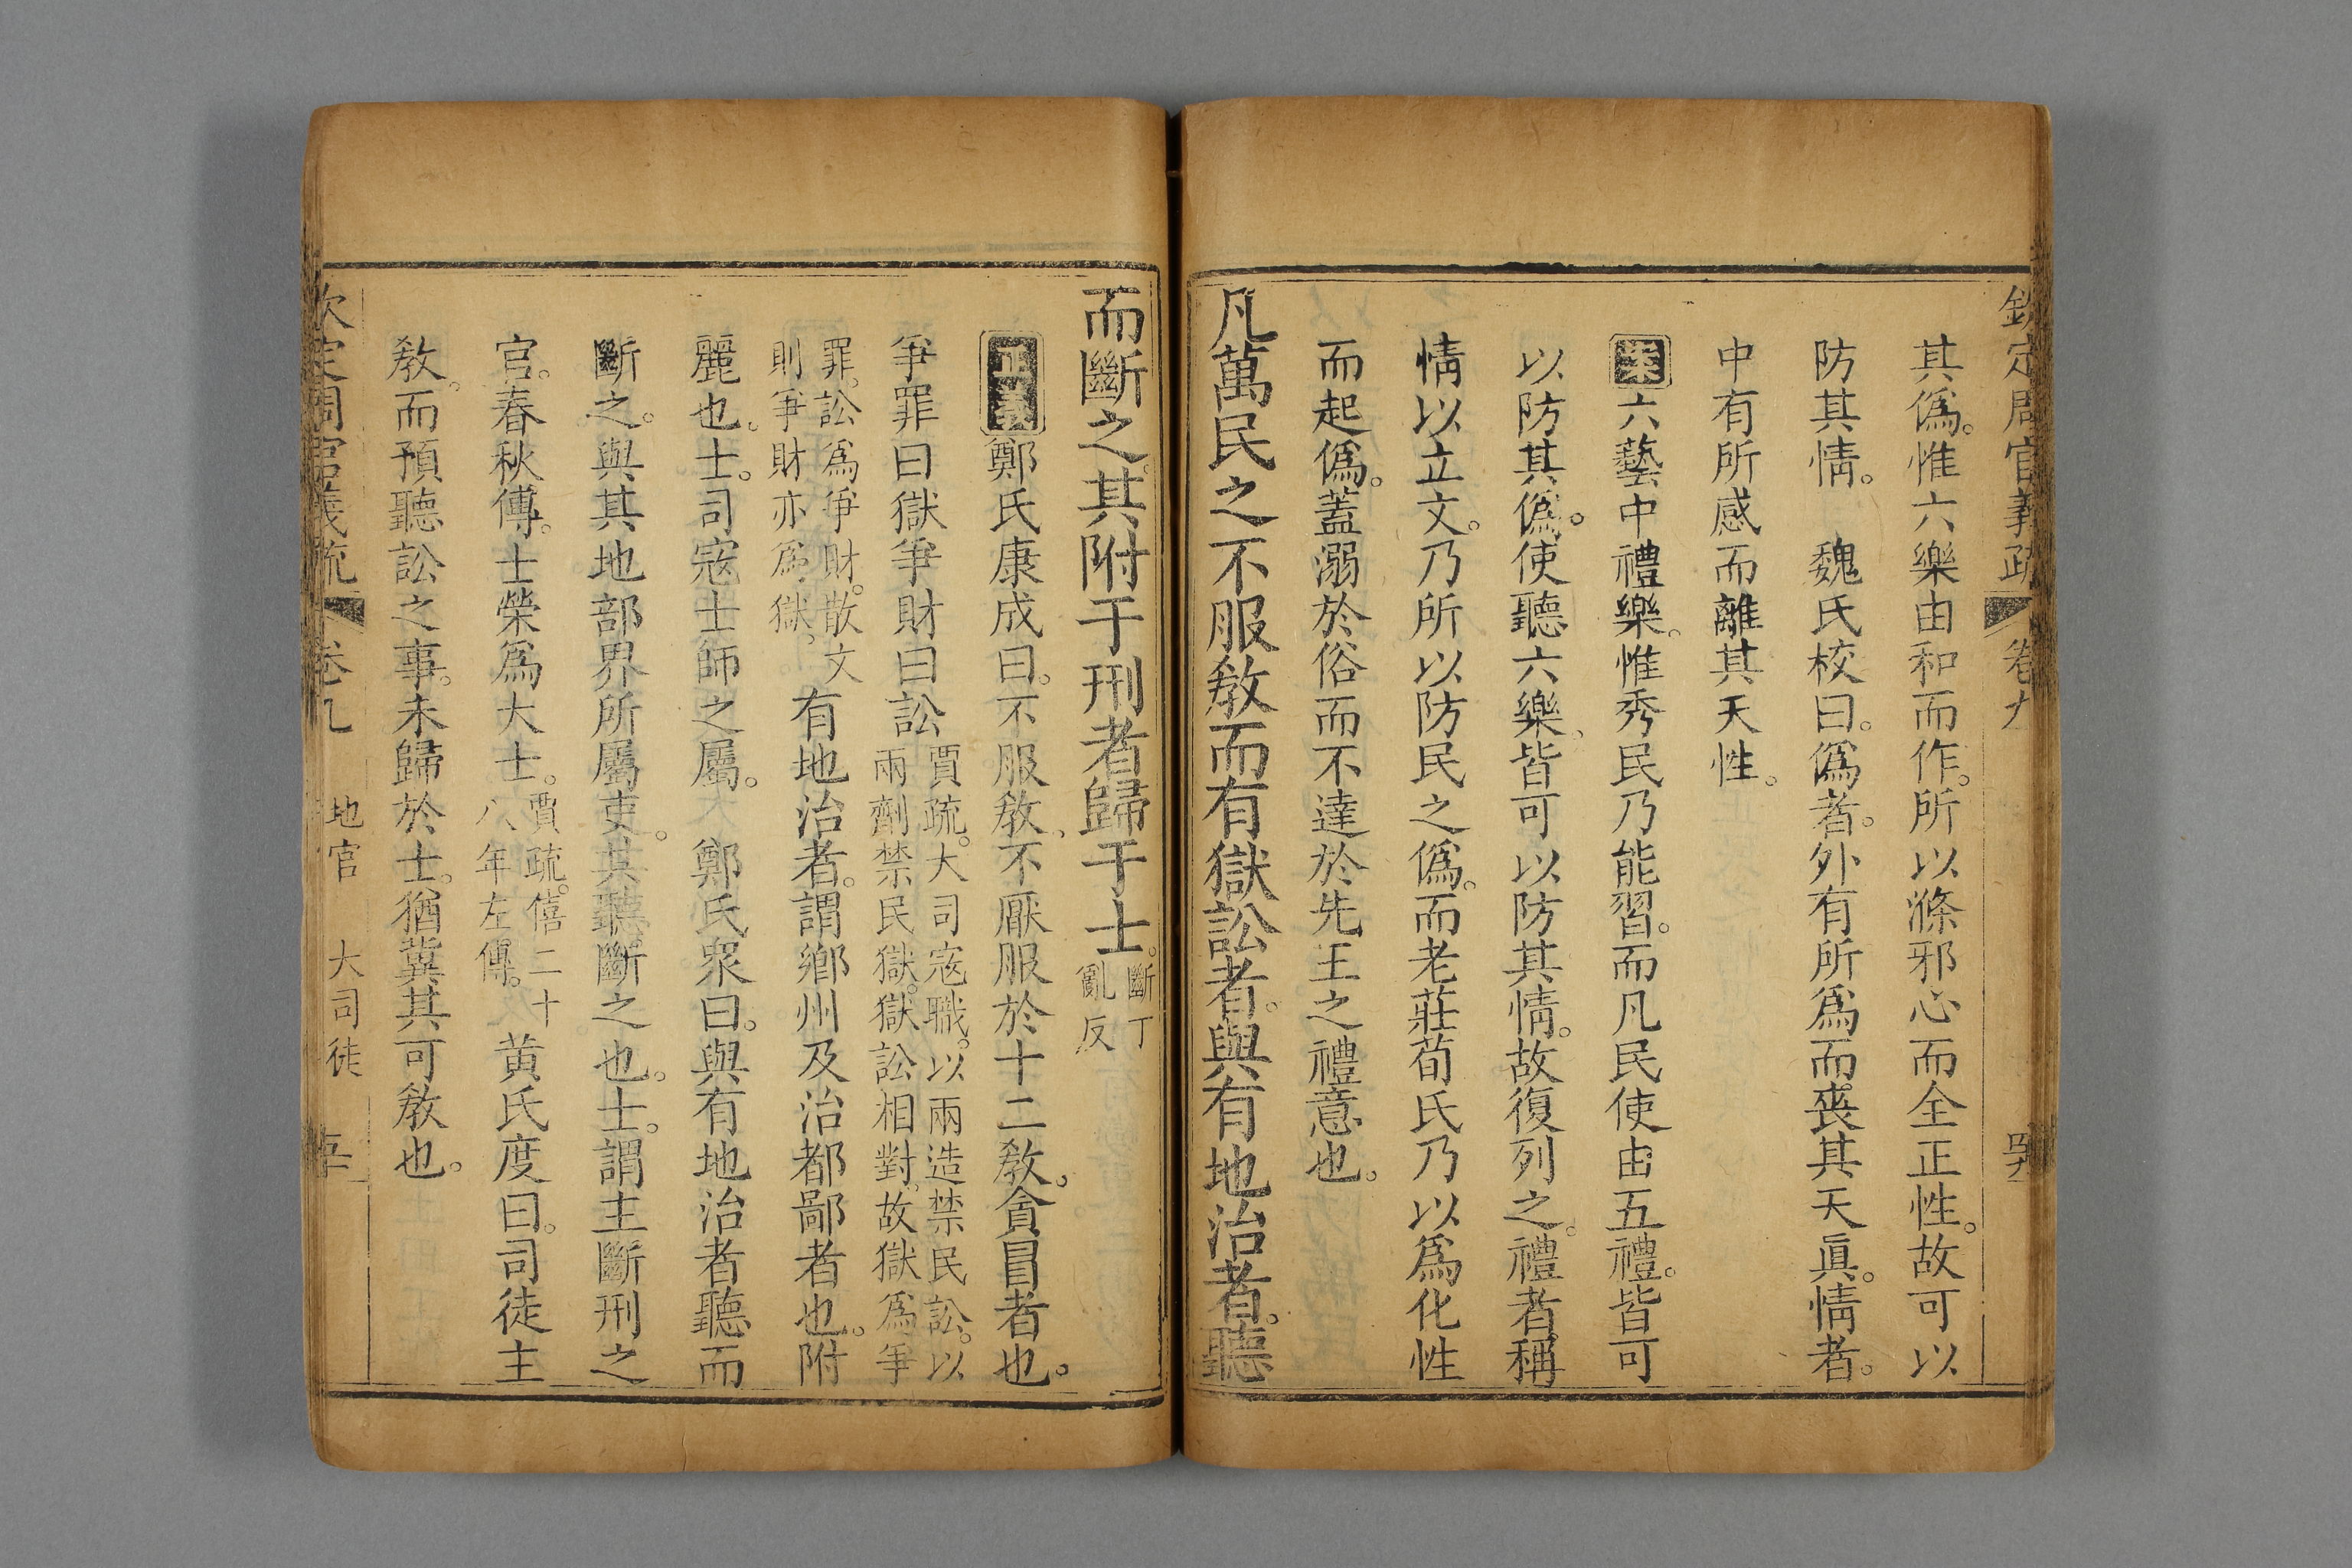 欽定周官義疏 卷九
其僞。惟六樂由和而作。所以滌邪心而全正性。故可以
防其情。 魏氏校曰。僞者。外有所爲而喪其天眞。情者。
中有所感而離其天性。
案六藝中禮樂。惟秀民乃能習。而凡民使由五禮。皆可
以防其僞。使聽六樂。皆可以防其情。故復列之。禮者。稱
情以立文。乃所以防民之僞。而老莊荀氏乃以爲化性
而起僞。蓋溺於俗而不達於先王之禮意也。
凡萬民之不服敎而有獄訟者。與有地治者。聽
而斷之。其附于刑者歸于士。斷丁
亂反
正義鄭氏康成曰。不服敎。不厭服於十二敎。貪冒者也。
爭罪曰獄爭財曰訟賈疏。大司寇職。以兩造禁民訟。以
兩劑禁民獄。獄訟相對。故獄爲爭
罪。訟爲爭財。散文
則爭財亦爲獄。有地治者。謂鄉州及治都鄙者也。附
麗也。士。司寇士師之屬。 鄭氏衆曰。與有地治者聽而
斷之。與其地部界所屬吏。共聽斷之也。士。謂主斷刑之
官。春秋傳。士榮爲大士。賈疏。僖二十
八年左傳。 黃氏度曰。司徒主
敎。而預聽訟之事。未歸於士。猶冀其可敎也。
欽定周官義疏 卷九 地官 大司徒